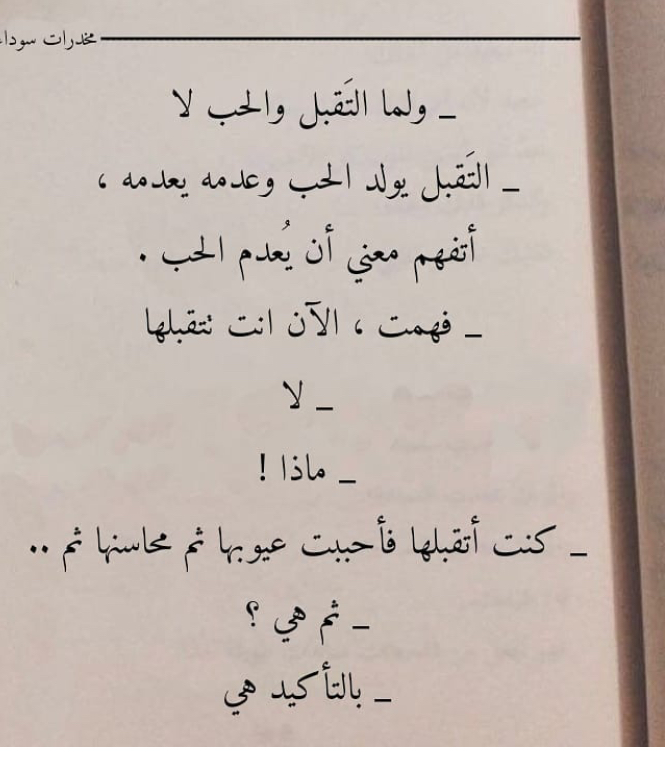 مخدرات سوداء
_ ولما التَقبل والحب لا
_ التَقبل يولد الحب وعدمه يعدمه ،
أتفهم معني أن يُعدم الحب .
_ فهمت ، الآن انت تتقبلها
_ لا
_ ماذا !
_ كنت أتقبلها فأحببت عيوبها ثم محاسنها ثم ..
_ ثم هي ؟
_ بالتأكيد هي